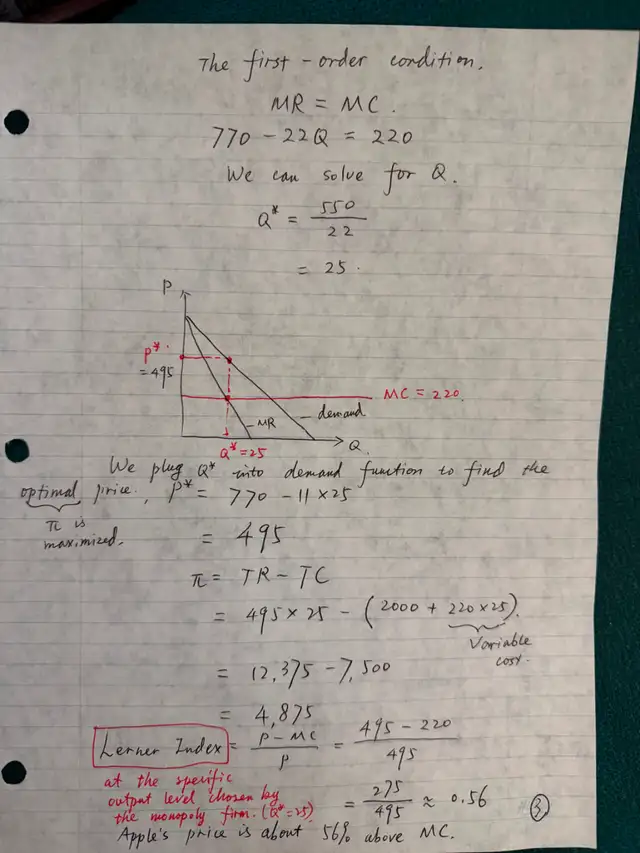 The first-order condition.
MR = MC.
770 - 22Q = 220
We can solve for Q.
Q* = 550 / 22
= 25.
P
P*
= 495
MC = 220.
demand
MR
Q* = 25
Q
We plug Q* into demand function to find the
optimal price. P* = 770 - 11 × 25
π is
maximized.
= 495
π = TR - TC
= 495 × 25 - (2000 + 220 × 25).
Variable
cost.
= 12,375 - 7,500
= 4,875
Lerner Index = P - MC / P = 495 - 220 / 495
at the specific
output level chosen by
the monopoly firm. (Q* = 25)
= 275 / 495 ≈ 0.56
③
Apple's price is about 56% above MC.